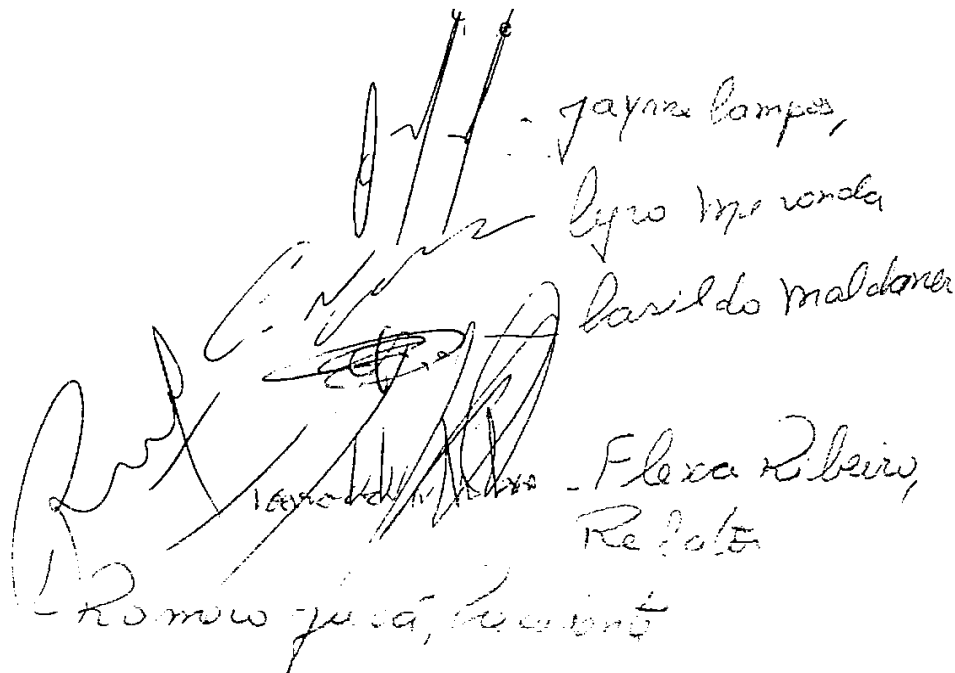 - Jayme Campos,
Cyro Miranda
Casildo Maldaner
- Flexa Ribeiro,
Relator
Romero Jucá, Presidente